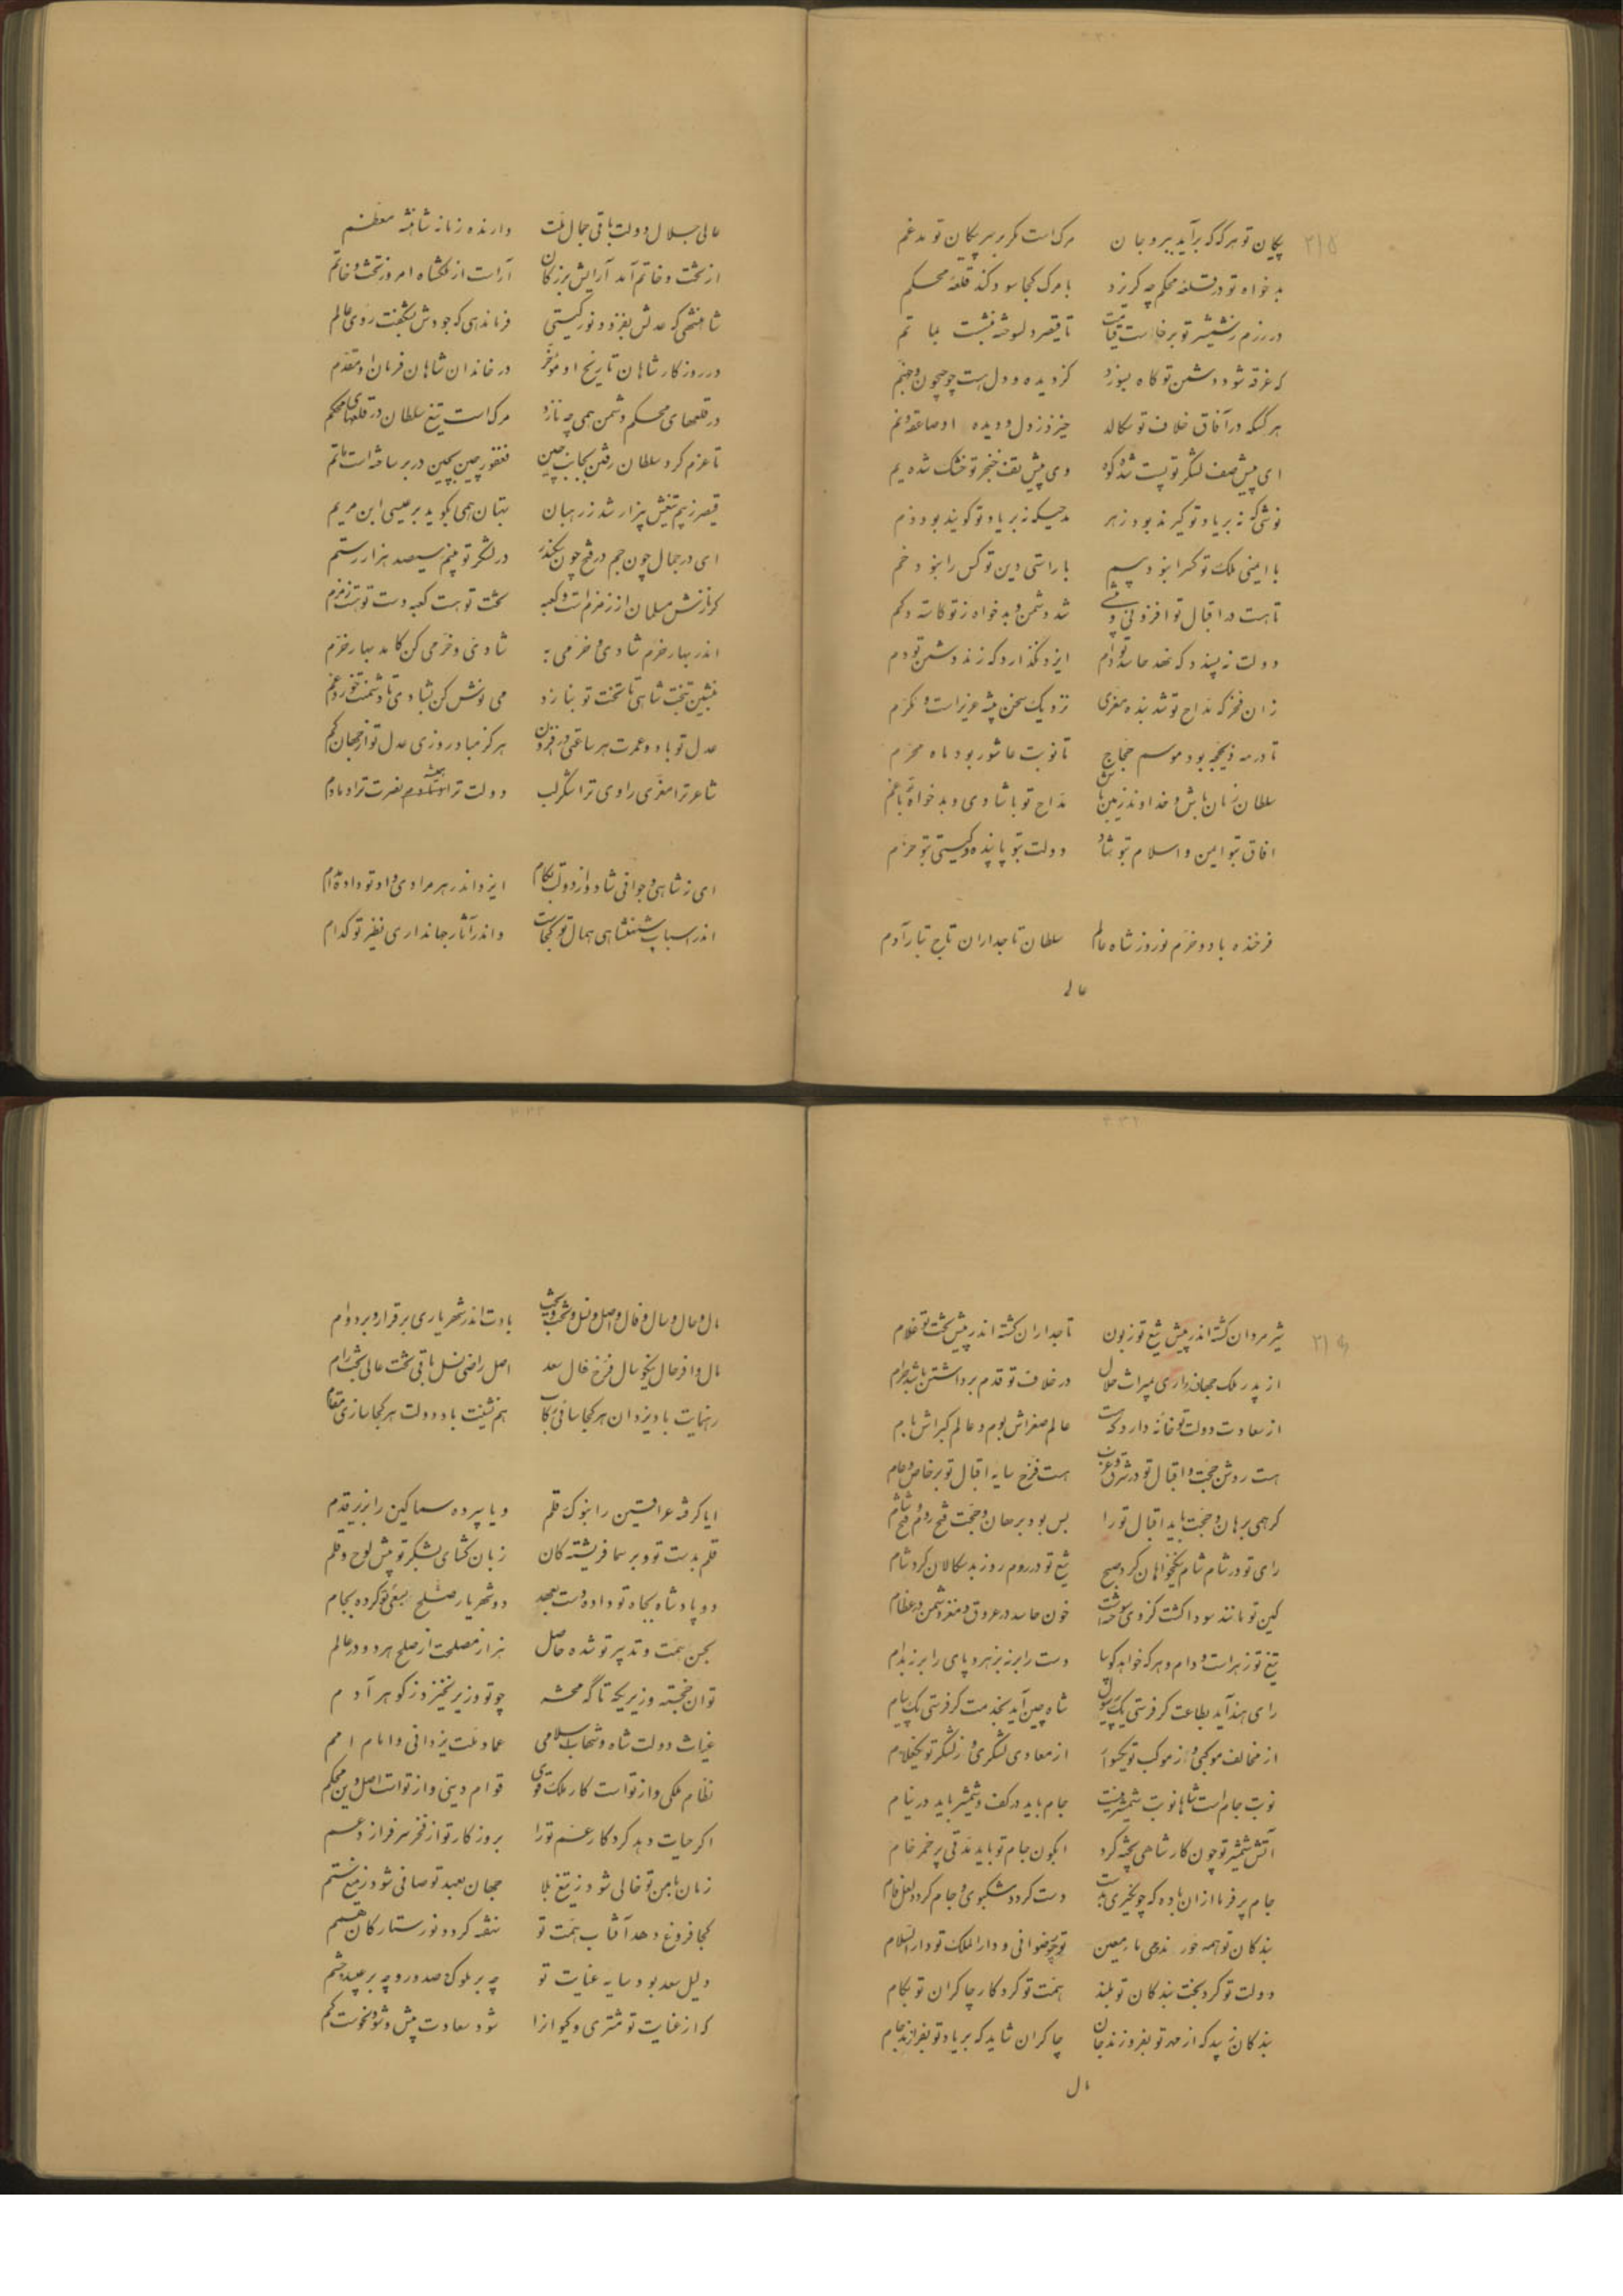 پیکان تو هرگه که برآید ببرد جان مرک است مکر بر سر پیکان تو مدغم
بدخواه تو در قلعه محکم چه کریزد با مرک کجا سود کند قلعه محکم
در رزم ز شمشیر تو برخاست قیامت تا قیصر دلسوخته بنشست بماتم
که غرقه شود دشمن تو کاه بسوزد کز دیده و دل هست چو جیحون و جهنم
هرکسکه در آفاق خلاف تو سکالد خیزد ز دل و دیده او صاعقه و نم
ای پیش صف لشکر تو پست شده کوه وی پیش تف خنجر تو خشک شده یم
نوشی که نه بر یاد تو کیرند بود زهر مدحیکه نه بر یاد تو کویند بود ذم
با ایمنی ملک تو کس را نبود بیم با راستی دین تو کس را نبود خم
تا هست در اقبال تو افزونی و بیشی شد دشمن و بدخواه ز تو کاسته و کم
دولت نپسندد که نهد حاسد تو دام ایزد نکذارد که زند دشمن تو دم
زان فخر که مداح تو شد بنده معزی نزدیک سخن پیشه عزیز است و مکرم
تا در مه ذیحجه بود موسم حجاج تا نوبت عاشور بود ماه محرم
سلطان زمان باش و خداوند زمین باش مداح تو با شادی و بدخواه تو با غم
افاق بتو ایمن و اسلام بتو شاد دولت بتو پاینده و کیتی بتو خرم
فرخنده باد و خرم نوروز شاه عالم سلطان تاجداران تاج تبار آدم
عالی
عالی جلال دولت باقی جمال ملت دارنده زمانه شاهنشه معظم
از تخت و خاتم آمد آرایش بزرکان آراست از ملکشاه امروز تخت و خاتم
شاهنشهی که عدلش بفزود نور کیتی فرماندهی که جودش بشکفت روی عالم
در روزکار شاهان تاریخ او مؤخر در خاندان شاهان فرمان او مقدم
در قلعهای محکم دشمن همی چه نازد مرک است تیغ سلطان در قلعهای محکم
تا عزم کرد سلطان رفتن بجانب چین فغفور چین بچین در بر ساخته است ماتم
قیصر ز بیم تیغش بیزار شد ز رهبان بهتان همی بکوید بر عیسی ابن مریم
ای در جمال چون جم در فتح چون سکندر در لشکر تو بینم سیصد هزار رستم
کر نازش مسلمان از زمزم است و کعبه تخت تو هست کعبه دست تو هست زمزم
اندر بهار خرم شادی و خرمی به شادی و خرمی کن کامد بهار خرم
بنشین بتخت شاهی تا تخت تو بنازد می نوش کن بشادی تا دشمنت خورد غم
عدل تو باد و عمرت هر ساعتی در افزون هرکز مباد روزی عدل تو از جهان کم
شاعر ترا معزی راوی ترا شکرلب دولت ترا همیشه نصرت ترا دمادم
ای ز شاهی و جوانی شاد و از دولت بکام ایزد اندر هر مرادی داد تو داده تمام
اندر اسباب شهنشاهی همال تو کجاست واندر آثار جهانداری نظیر تو کدام
شیر مردان کشته اندر پیش تیغ تو زبون تاجداران کشته اندر پیش تخت تو غلام
از پدر ملک جهان داری بمیراث حلال در خلاف تو قدم برداشتن باشد حرام
از سعادت دولت تو خانه دارد که هست عالم صغراش بوم و عالم کبراش بام
هست روشن حجت و اقبال تو در شرق و غرب هست فرخ سایه اقبال تو بر خاص و عام
کر همی برهان و حجت باید اقبال تو را بس بود برهان و حجت فتح روم و فتح شام
رای تو در شام شام نیکخواهان کرد صبح تیغ تو در روم روز بدسکالان کرد شام
کین تو مانند سودا کشت کز وی سوخته خون حاسد در عروق و مغز دشمن در عظام
تیغ تو زهر است و دام و هر که خواهد کو بیا دست را بر زن بزهر و پای را بر زن بدام
رای هند آید بطاعت کر فرستی یک رسول شاه چین آید بخدمت کر فرستی یک پیام
از مخالف موکبی و از موکب تو یکسوار از معادی لشکری و ز لشکر تو یکغلام
نوبت جام است شاها نوبت شمشیر نیست جام باید در کف و شمشیر باید در نیام
آتش شمشیر تو چون کار شاهی پخته کرد اکنون جام تو باید مدتی پر خمر خام
جام پر فرما از ان باده که چو نکیری بدست دست کردد مشکبوی و جام کردد لعل فام
بندکان تو همه حور ندمی ماء معین تو چو رضوانی و دارالملک تو دارالسلام
دولت تو کرد بخت بندکان تو بلند همت تو کرد کار چاکران تو بکام
بندکان زیبد که از مهر تو بفروزند جان چاکران شاید که بر یاد تو بفرازند جام
مال
مال و حال و سال و فال و اصل و نسل و تخت و بخت بادت اندر شهریاری برقرار و بر دوام
مال وافر حال نیکو سال فرخ فال سعد اصل راضی نسل باقی تخت عالی بخت رام
رهنمایت باد یزدان هر کجا سائی رکاب همنشینت باد دولت هر کجا سازی مقام
ایا کرفته عراقین را بنوک قلم و یا سپرده سماکین را بزیر قدم
قلم بدست تو و بر سما فرشته کان زبان کشای بشکر تو پیش لوح و قلم
دو پادشاه بجاه تو داده دست بعهد دو شهریار بصلح سعی تو کرده بجام
بحسن همت و تدبیر تو شده حاصل هزار مصلحت از صلح هر دو در عالم
توان خجسته وزیریکه تا که محشر چو تو وزیر نخیزد ز کوهر آدم
غیاث دولت شاه و شهاب اسلامی عماد ملت یزدانی و امام امم
نظام ملکی و از تو است کار ملک قوی قوام دینی و از تو است اصل دین محکم
اکر حیات دهد کردکار عم تو را بروزکار تو از فخر سرفرازد عم
زمان بامن تو خالی شود ز تیغ بلا جهان بعید تو صافی شود ز میغ ستم
کجا فروغ دهد آفتاب همت تو نهفته کردد نور ستارکان همم
دلیل سعد بود سایه عنایت تو چه بر ملوک و صدور و چه بر عبید و حشم
که از عنایت تو مشتری و کیوانرا شود سعادت بیش و شود نحوست کم